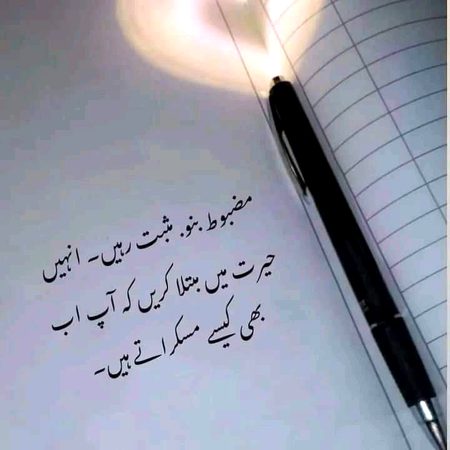 مضبوط بنو. مثبت رہیں۔ انہیں
حیرت میں مبتلا کریں کہ آپ اب
بھی کیسے مسکراتے ہیں۔